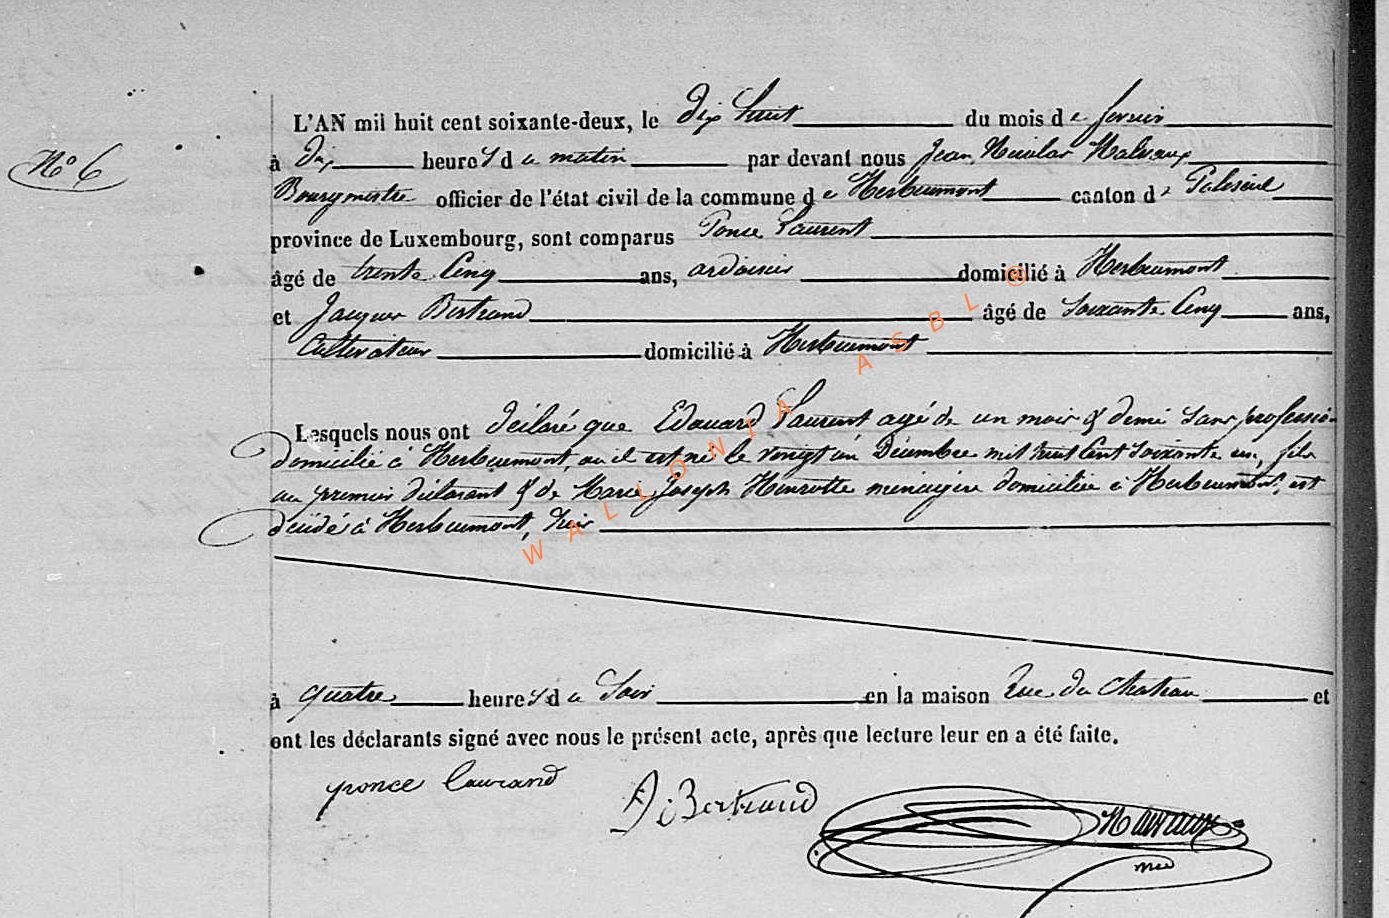 L'AN mil huit cent soixante-deux, le dix huit du mois de fevrier
N° 6
à dix heures du matin par devant nous Jean Nicolas Malvaux
Bourgmestre officier de l'état civil de la commune de Herbeumont canton de Paliseul
province de Luxembourg, sont comparus Ponce Laurent
âgé de trente cinq ans, ardoisier domicilié à Herbeumont
et Jacques Bertrand âgé de soixante cinq ans,
Cultivateur domicilié à Herbeumont
Lesquels nous ont déclaré que Edouard Laurent agé de un mois & demi sans profession
domicilié à Herbeumont, ou il est né le vingt un Décembre mil huit cent soixante un, fils
au premier déclarant & de Marie Joseph Henrotte menagère domiciliée à Herbeumont, est
décédé à Herbeumont, hier
à quatre heures du soir en la maison Rue du Chateau et
ont les déclarants signé avec nous le présent acte, après que lecture leur en a été faite.
ponce laurand
J Bertrand
Malvaux
WALLONIA ASBL @